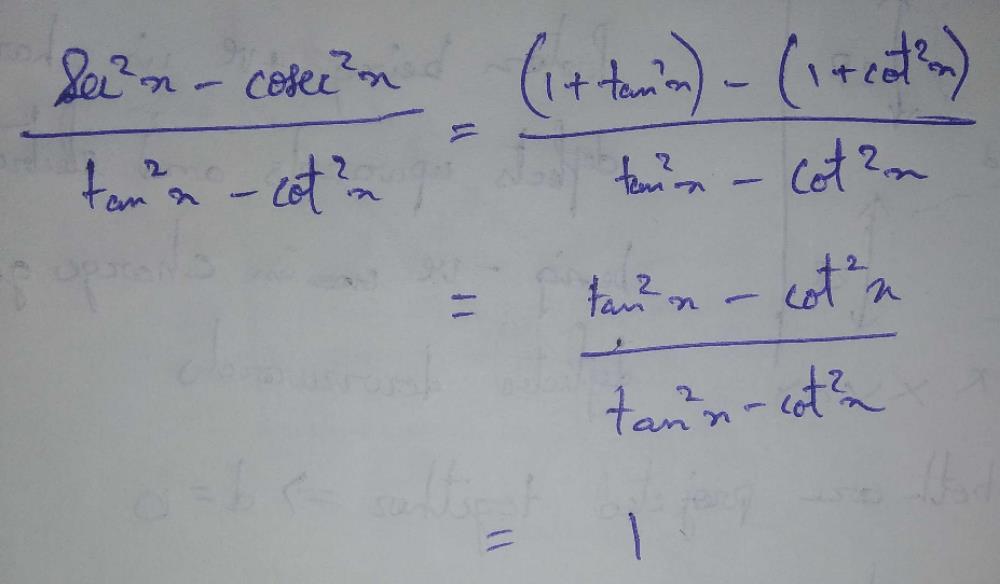 sec²x - cosec²x / tan²x - cot²x = (1 + tan²x) - (1 + cot²x) / tan²x - cot²x
= tan²x - cot²x / tan²x - cot²x
= 1